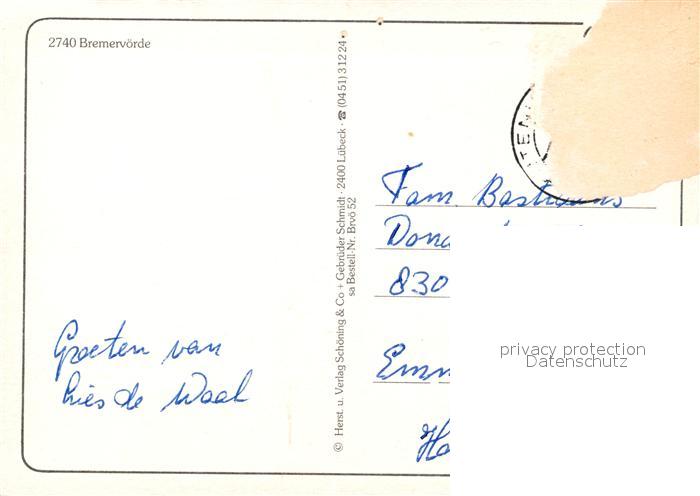 2740 Bremervörde
Groeten van
Lies de Waal
© Herst. u. Verlag Schöning & Co + Gebrüder Schmidt · 2400 Lübeck · ☎ (04 51) 3 12 24
sa Bestell-Nr. Brvö 52
Fam. Bastiaans
Dona
830
Emm
Ha
privacy protection
Datenschutz